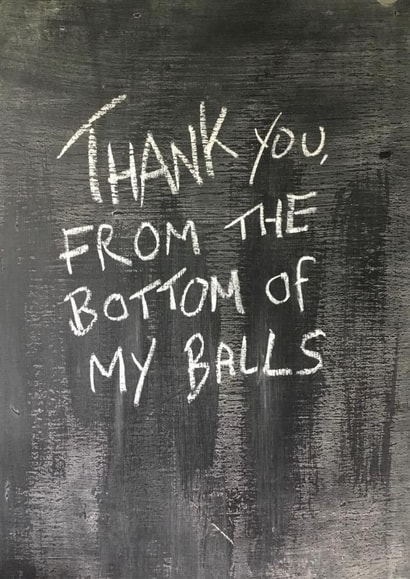 THANK YOU,
FROM THE
BOTTOM OF
MY BALLS